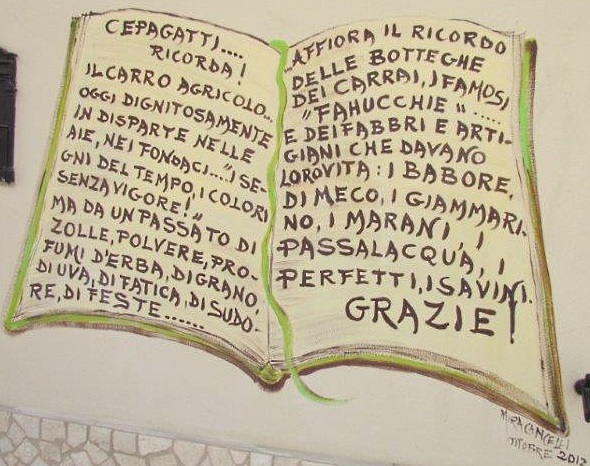 CEPAGATTI....
RICORDA!
IL CARRO AGRICOLO...
OGGI DIGNITOSAMENTE
IN DISPARTE NELLE
AIE, NEI FONDACI...."I SE-
GNI DEL TEMPO, I COLORI
SENZA VIGORE!"
MA DA UN PASSATO DI
ZOLLE, POLVERE, PRO-
FUMI D'ERBA, DI GRANO,
DI UVA, DI FATICA, DI SUDO-
RE, DI FESTE.......
..AFFIORA IL RICORDO
DELLE BOTTEGHE
DEI CARRAI, I FAMOSI
"FAHUCCHIE".....
E DEI FABBRI E ARTI-
GIANI CHE DAVANO
LORO VITA: I BABORE,
DI MECO, I GIAMMARI-
NO, I MARANI, I
PASSALACQUA, I
PERFETTI, I SAVINI.
GRAZIE!
CANCELLI
2012